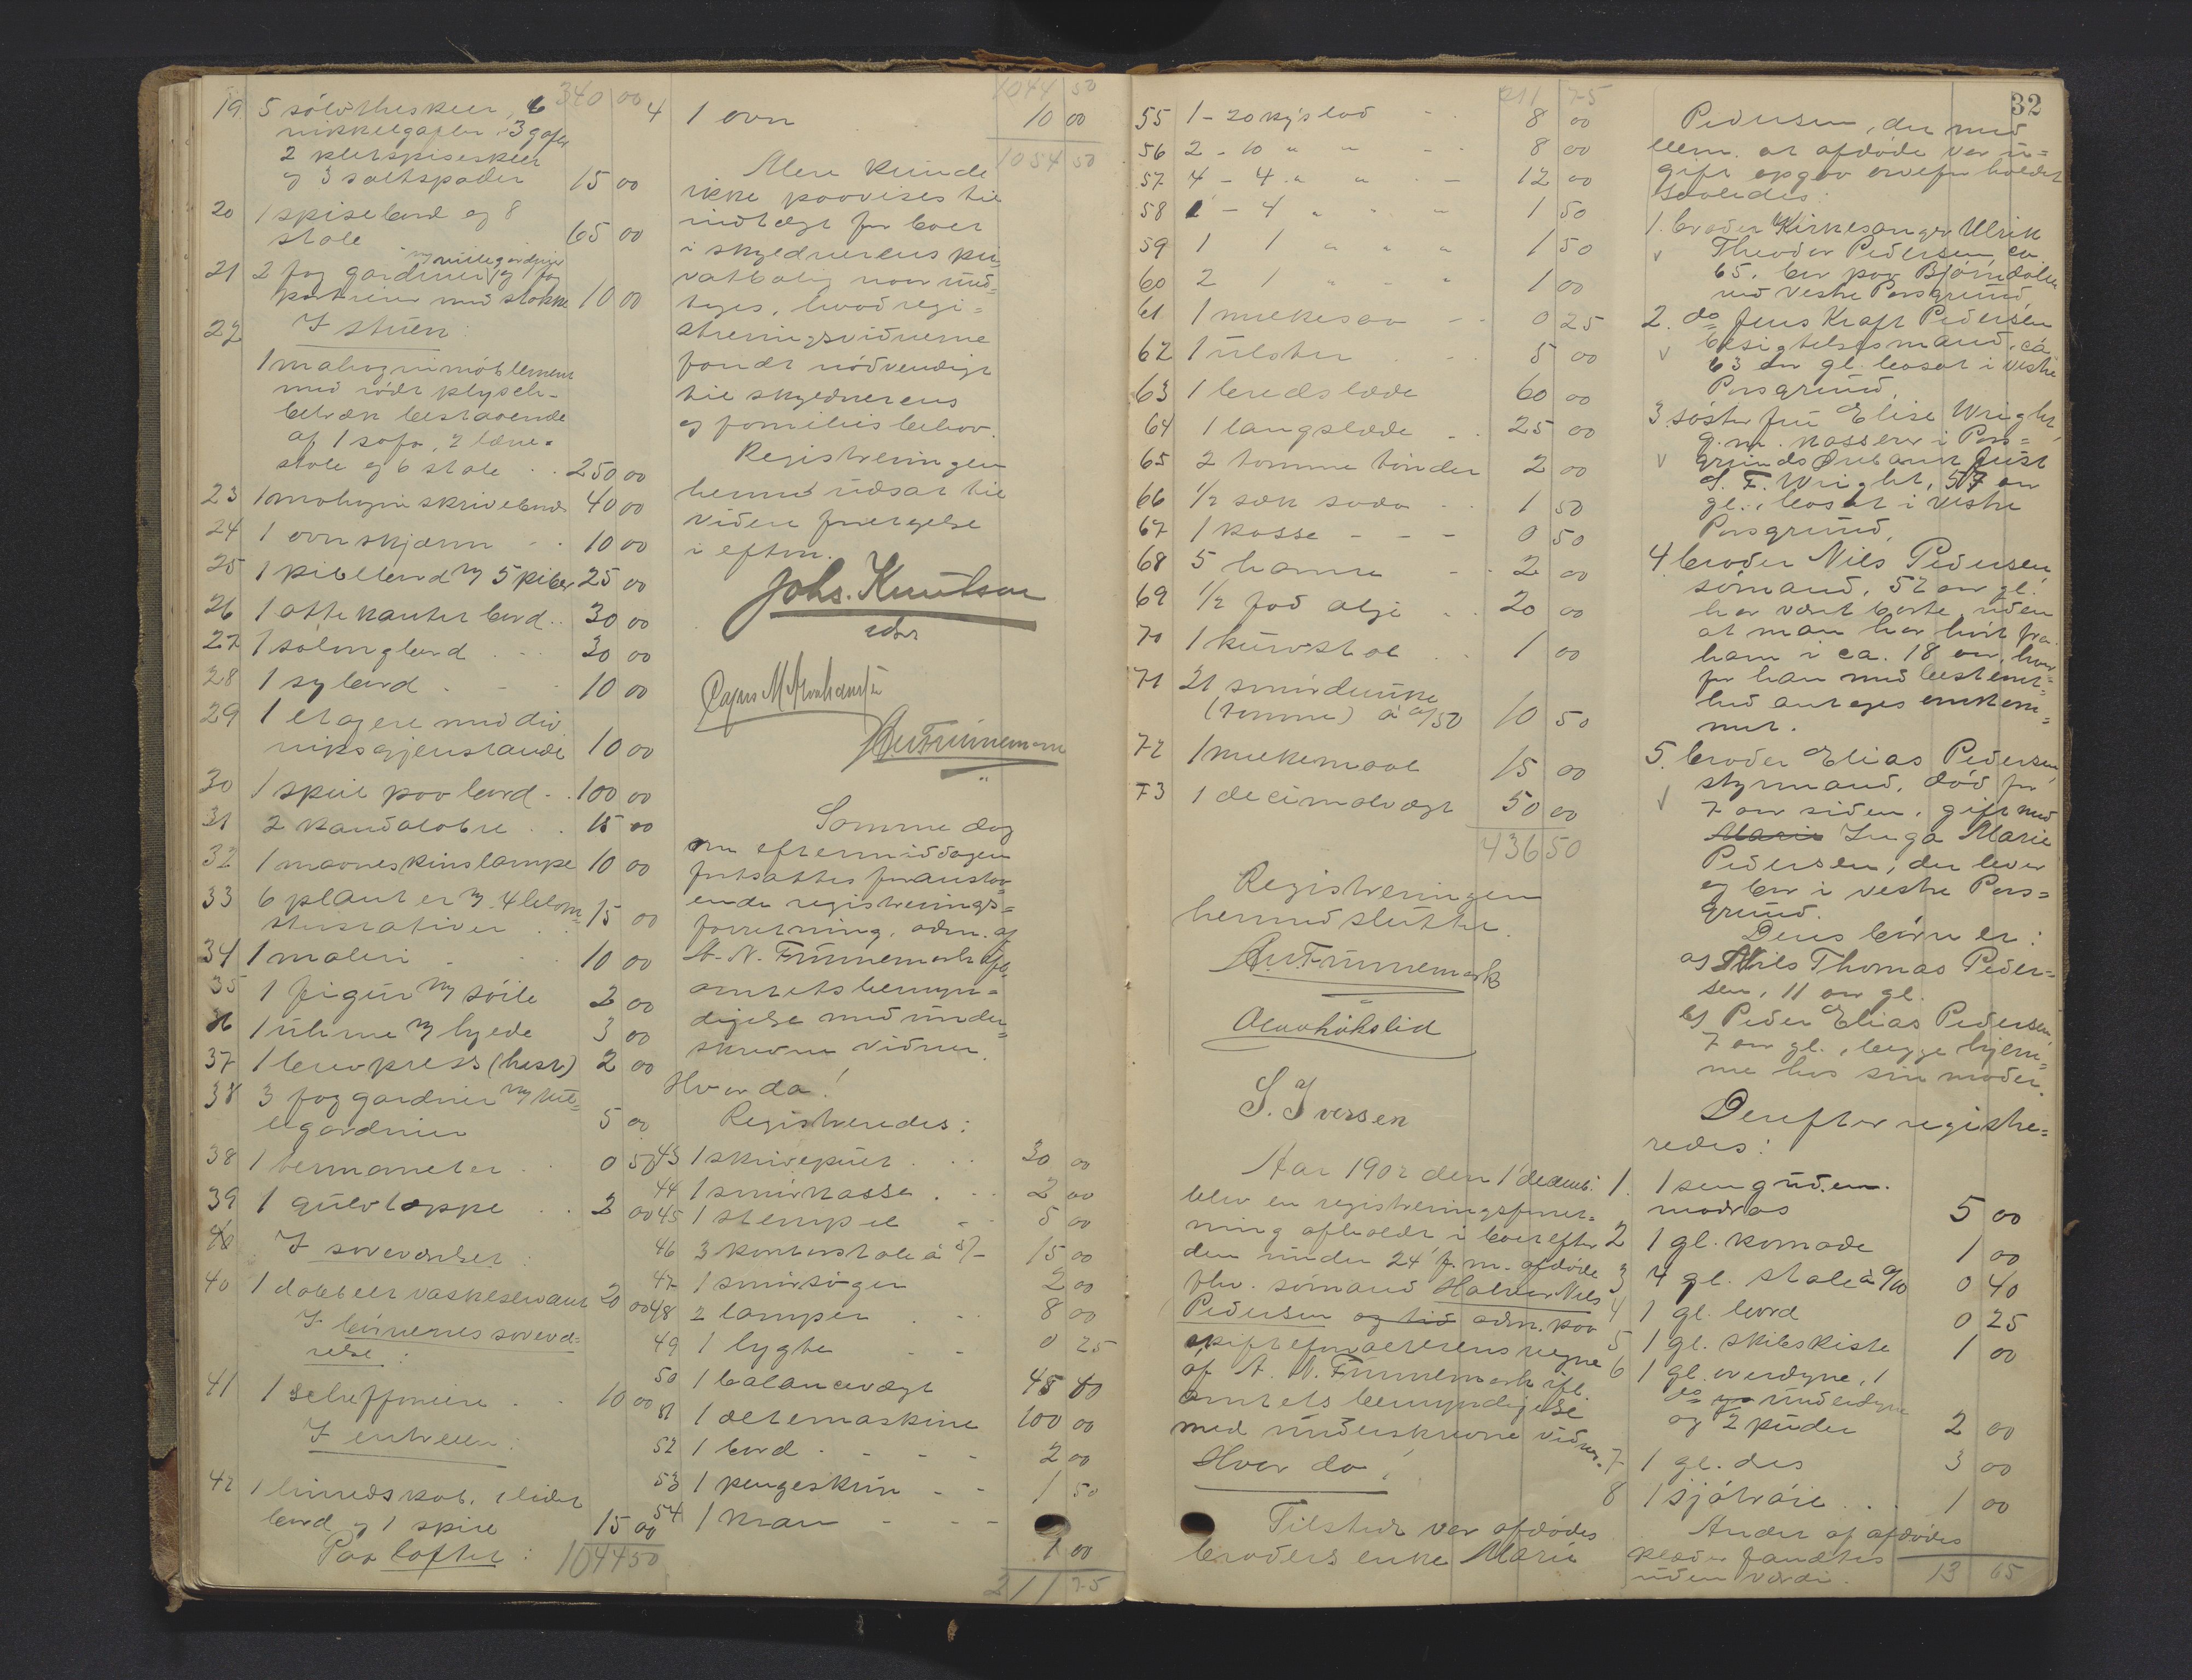 340 00
19 5 sölvtheskeer, 6
nikkelgafler 3 gafler
2 pletspiseskeer
og 3 saltspader 15 00
20 1 spisebord og 8
stole 65 00
m/ rullegardiner
21 2 fag gardiner og 1 fag
portierer med stokke 10 00
22 I stuen
1 mahognimöblement
med rödt plysch-
betræk bestaaende
af 1 sofa, 2 læne-
stole og 6 stole 250 00
23 1 mahogni skrivebord 40 00
24 1 ovnskjærm 10 00
25 1 pibebord m/ 5 piber 25 00
26 1 ottekantet bord 30 00
27 1 salongbord 30 00
28 1 sybord 10 00
29 1 etagere med div
niksgjenstande 10 00
30 1 speil paa bord 100 00
31 2 kandalabre 15 00
32 1 maaneskinslampe 10 00
33 6 planter m. 4 blom-
sterstativer 15 00
34 1 maleri 10 00
35 1 figur m/ söile 2 00
36 1 uhrne m/ hylde 3 00
37 1 brevpress (hest) 2 00
38 3 fag gardiner m/ rul-
legardiner 5 00
38 1 termometer 0 50
39 1 gulvtæppe 2 00
40 I soveværelset:
40 1 dobbelt vaskeservant 20 00
I börnenes sovevæ-
relse:
41 1 scheffoniere 10 00
I entreen:
42 1 linnedskab, 1 lidet
bord og 1 speil 15 00
Paa loftet: 1044 50
1044 50
4 1 ovn 10 00
1054 50
Mere kunde
ikke paavises til
indtægt for boet
i skyldnerens pri-
vatbolig naar und-
tages, hvad regi-
streringsvidnerne
fandt nödvendigt
til skyldnerens
og families behov.
Registreringen
hermed udsat til
videre foretagelse
i efterm.
Johs. Knutson
A.N. Funnemark
Samme dag
om eftermiddagen
fortsattes foranstaa-
ende registrerings-
forretning, adm. af
A. N. Funnemark ifl.
amtets bemyn-
digelse med under-
skrevne vidner.
Hvor da!
Registreredes:
43 1 skrivepult 30 00
44 1 smörkasse 2 00
45 1 stempel 5 00
46 3 kontorstole à 5/- 15 00
47 1 smörsöger 2 00
48 2 lamper 8 00
49 1 lygte 0 25
50 1 balancevægt 45 00
51 1 æltemaskine 100 00
52 1 bord 2 00
53 1 pengeskrin 1 50
54 1 kran 1 00
211 75
32
211 75
55 1 - 20 kg's lod 8 00
56 2 - 10 " " 8 00
57 4 - 4 " " 12 00
58 1 - 4 " " 1 50
59 1 1 " " " 1 50
60 2 1 " " " 1 00
61 1 melkesaa 0 25
62 1 ulster 5 00
63 1 bredslæde 60 00
64 1 langslæde 25 00
65 2 tomme tönder 2 00
66 1/2 sæk soda 1 50
67 1 kasse 0 50
68 5 hamre 2 00
69 1/2 fad olje 20 00
70 1 kurvstol 1 00
71 21 smördunke
(tomme) à 0/50 10 50
72 1 melkemaal 15 00
73 1 decimalvægt 50 00
436 50
Registreringen
hermed sluttet.
A.N. Funnemark
Olav Lökslid
S. Iversen
Aar 1902 den 1 decemb.
blev en registreringsforret-
ning afholdt i boet efter
den under 24 f. m. afdöde
fhv. sömand Halvor Nils
Pedersen og tid adm. paa
skifteforvalterens vegne
af A. N. Funnemark ifl.
amtets bemyndigelse
med underskrevne vidner.
Hvor da!
Tilstede var afdödes
broders enke Marie
Pedersen, der med
dem. at afdöde var u-
gift opgav arveforholdet
saaledes:
1. broder Kirkesanger Ulrik
Theodor Pedersen, ca
65, bor paa Björndalen
ved Vestre Porsgrund,
2. do Jens Kraft Pedersen
besigtelsesmand, ca
63 aar gl. bosat i vestre
Porsgrund,
3. söster fru Elise Wright,
g. m. kasserer i Pors-
grunds Örebank Just
J. F. Wright, 57 aar
gl., bosat i vestre
Porsgrund,
4. broder Nils Pedersen,
sömand, 52 aar gl.
har vært borte uden
at man har hört fra
ham i ca. 18 aar, hvor-
for han med bestemt-
hed antages omkom-
met.
5. broder Elias Pedersen,
styrmand, död for
7 aar siden, gift med
Marie Inga Marie
Pedersen, der lever
og bor i vestre Pors-
grund.
Deres börn er:
a) Nils Thomas Peder-
sen, 11 aar gl.
b) Peder Elias Pedersen,
7 aar gl., begge hjem-
me hos sin moder.
Derefter registre-
redes:
1. 1 seng uden
madras 5 00
2 1 gl. komode 1 00
3 4 gl. stole à 0/10 0 40
4 1 gl. bord 0 25
5 1 gl. skibskiste 1 00
6 1 gl. overdyne, 1
do underdyne
og 2 puder 2 00
7 1 gl. des 3 00
8 1 sjötröie 1 00
Andet af afdödes
klæder fandtes
uden værdi. 13 65